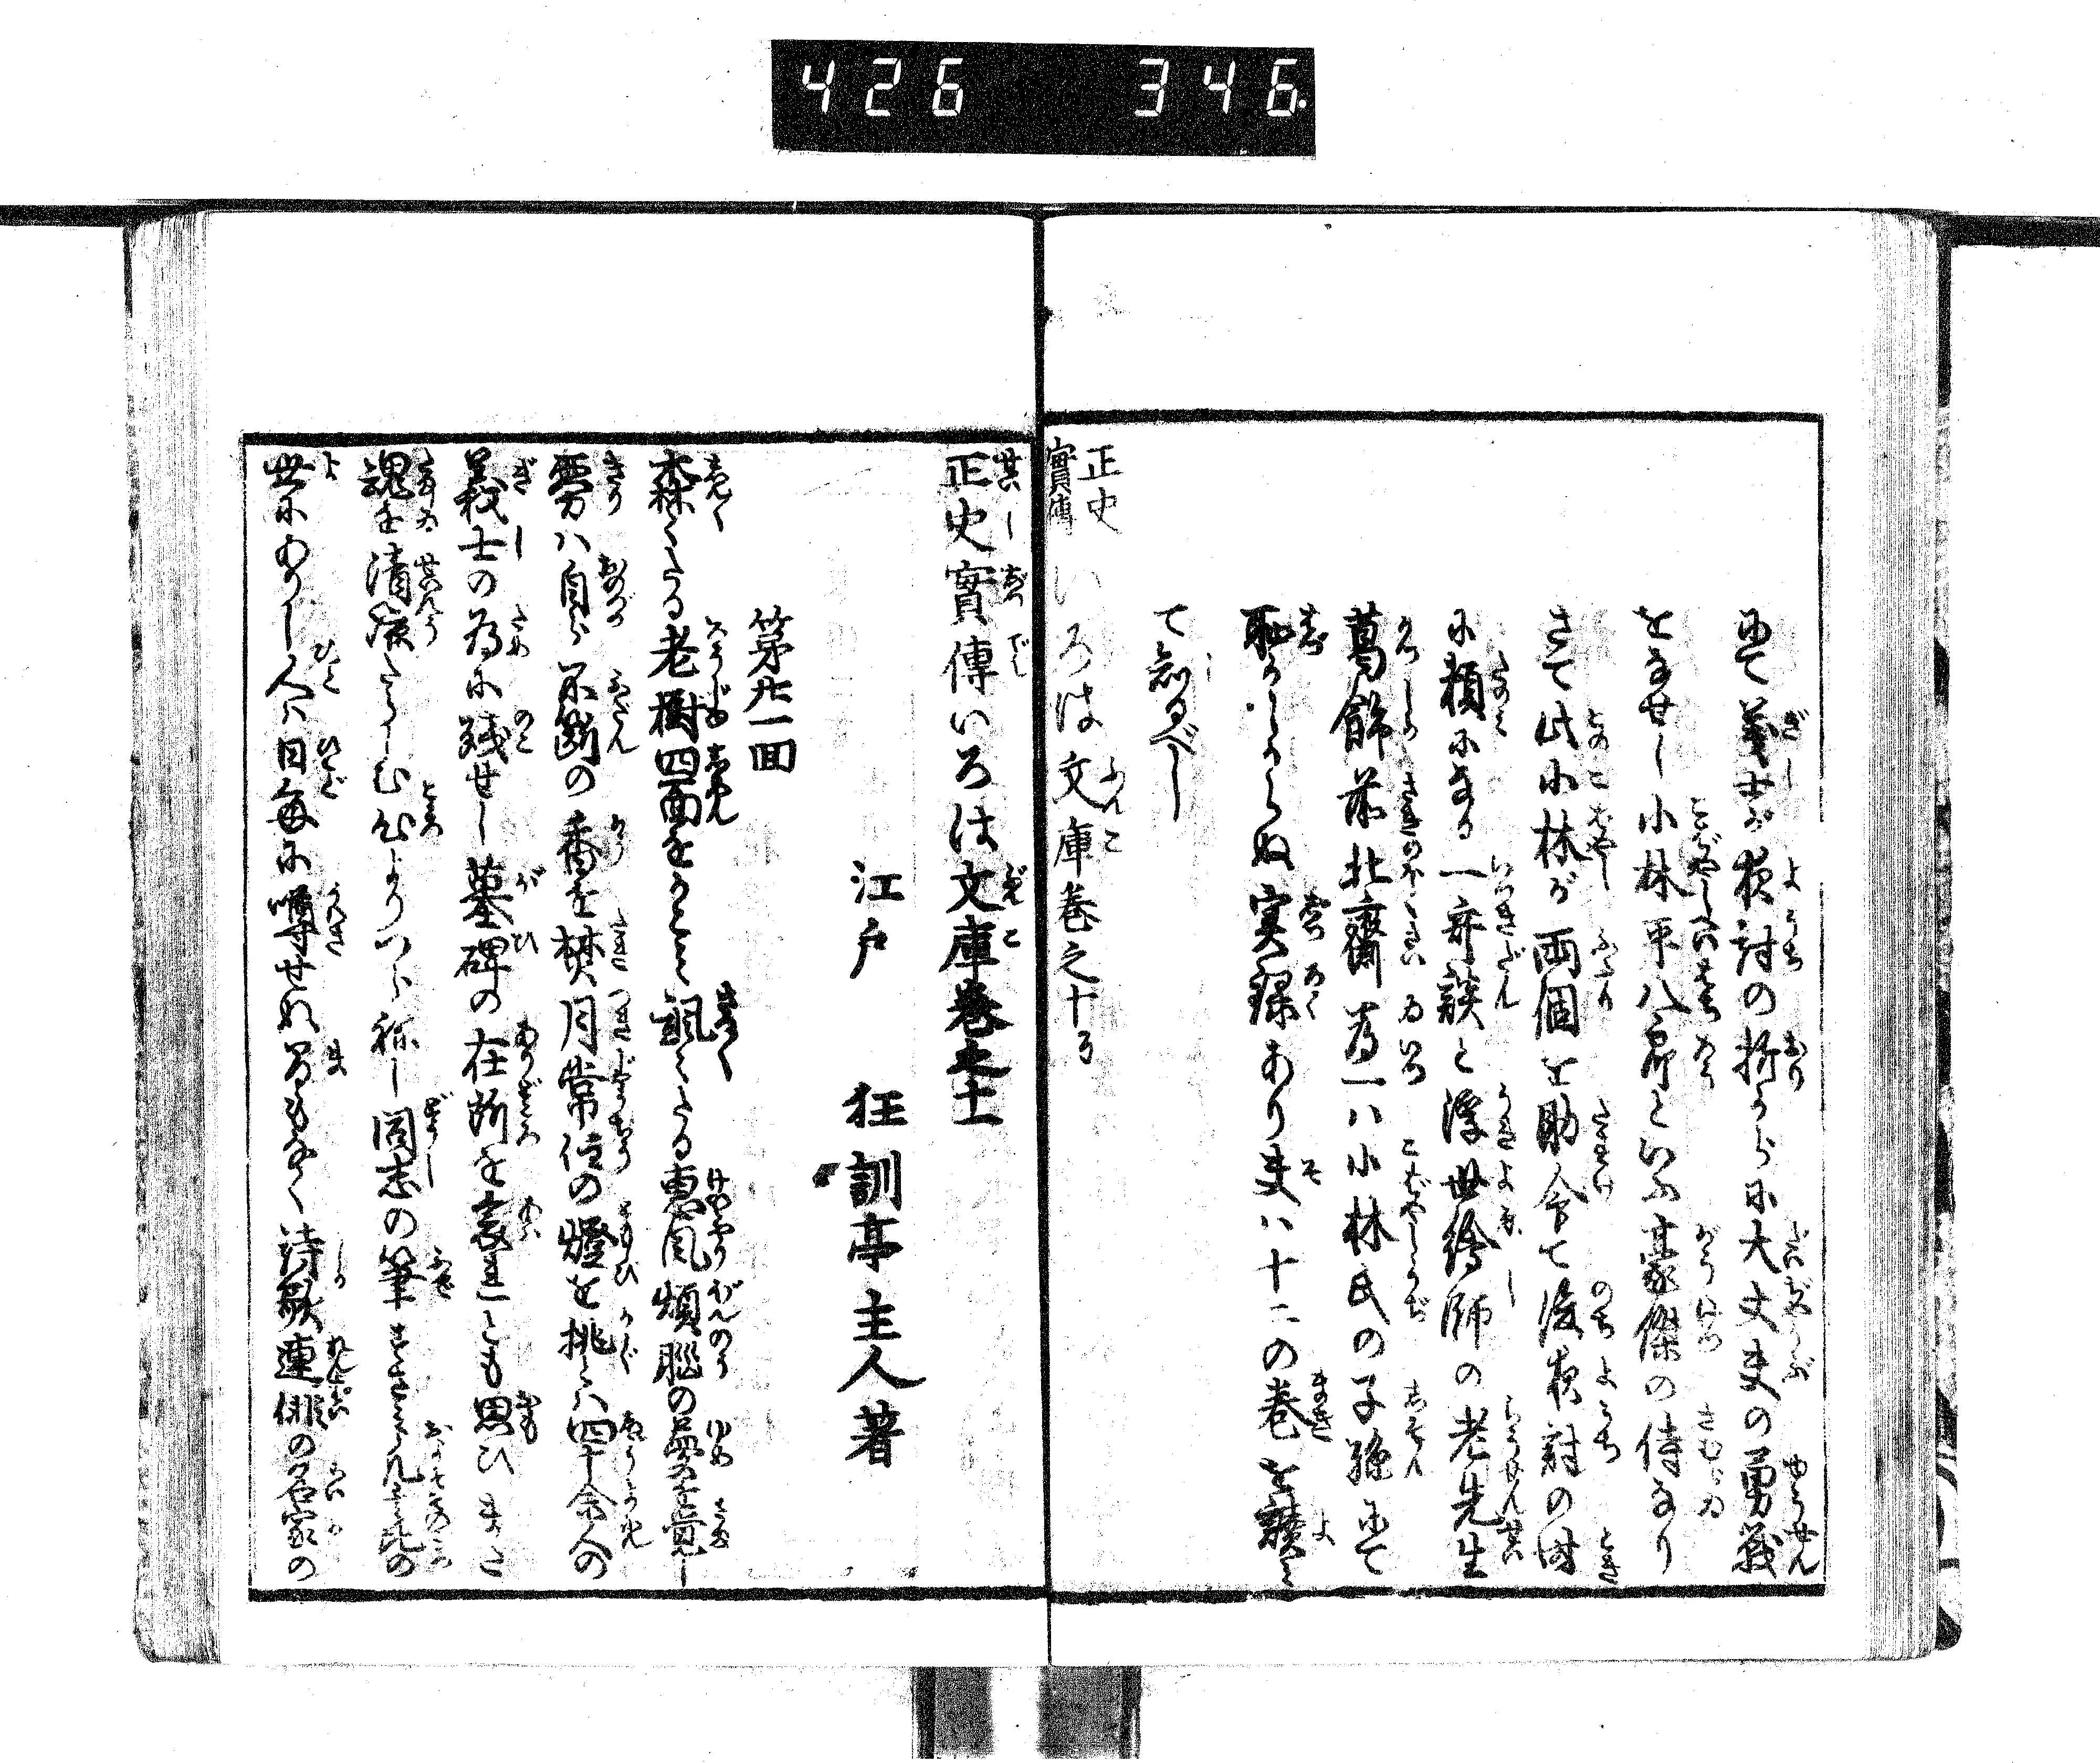 426 346.
にて義士が夜討の折からに大丈夫の勇戦
をなせし小林平八郎といふ豪傑の侍なり
さて此小林が両個を助命て後夜討の時
に頼になる一奇談と浮世繪師の老先生
葛飾前北齋為一ハ小林氏の子孫にて
耻かしからぬ実録あり夫ハ十二の巻を讀
て知るべし
正史實傳いろは文庫巻之十了
正史實傳いろは文庫巻之十一
江戸 狂訓亭主人著
第廿一回
森〻たる老樹四面をかこみ颯〻たる恵風煩悩の夢を覚し
雰ハ自ら不断の香を焚月常住の燈を挑ぐ四十余人の
義士の為に残せし墓碑の在所を哀れとも思ひまた
魂を清廉たらしむ
同志の筆
世にありし人ハ日毎に噂せぬ間もなく詩歌連俳の名家の